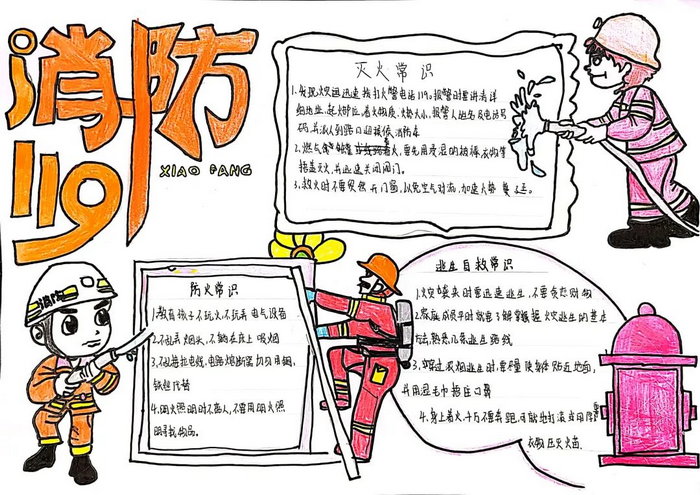 消防
119
XIAO FANG
灭火常识
1、发现火灾迅速拨打火警电话119。报警时要讲清详
细地址、起火部位、着火物质、火势大小、报警人姓名及电话号
码,并派人到路口迎接消防车
2、燃气着火,要先用浸湿的被褥、衣物等
捂盖灭火,并迅速关闭阀门。
3、救火时不要贸然开门窗,以免空气对流,加速火势蔓延。
防火常识
1、教育孩子不玩火,不玩弄电气设备
2、不乱丢烟头,不躺在床上吸烟
3、不乱接拉电线,电路熔断器切勿用铜、
铁丝代替
4、明火照明时不离人,不要用明火照
明寻找物品。
逃生自救常识
1、火灾袭来时要迅速逃生,不要贪恋财物
2、家庭成员平时就要了解掌握火灾逃生的基本
方法,熟悉几条逃生路线
3、穿过浓烟逃生时,要尽量使身体贴近地面,
并用湿毛巾捂住口鼻
4、身上着火,千万不要奔跑,可就地打滚或用厚
衣物压灭火苗
消防